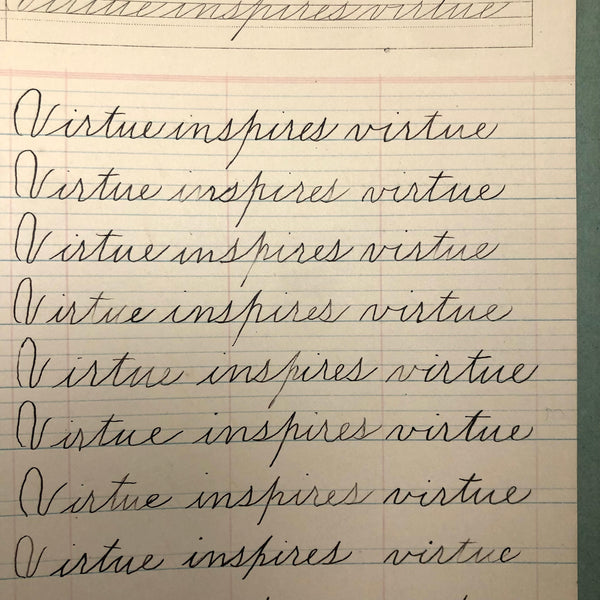 Virtue inspires virtue
Virtue inspires virtue
Virtue inspires virtue
Virtue inspires virtue
Virtue inspires virtue
Virtue inspires virtue
Virtue inspires virtue
Virtue inspires virtue
Virtue inspires virtue